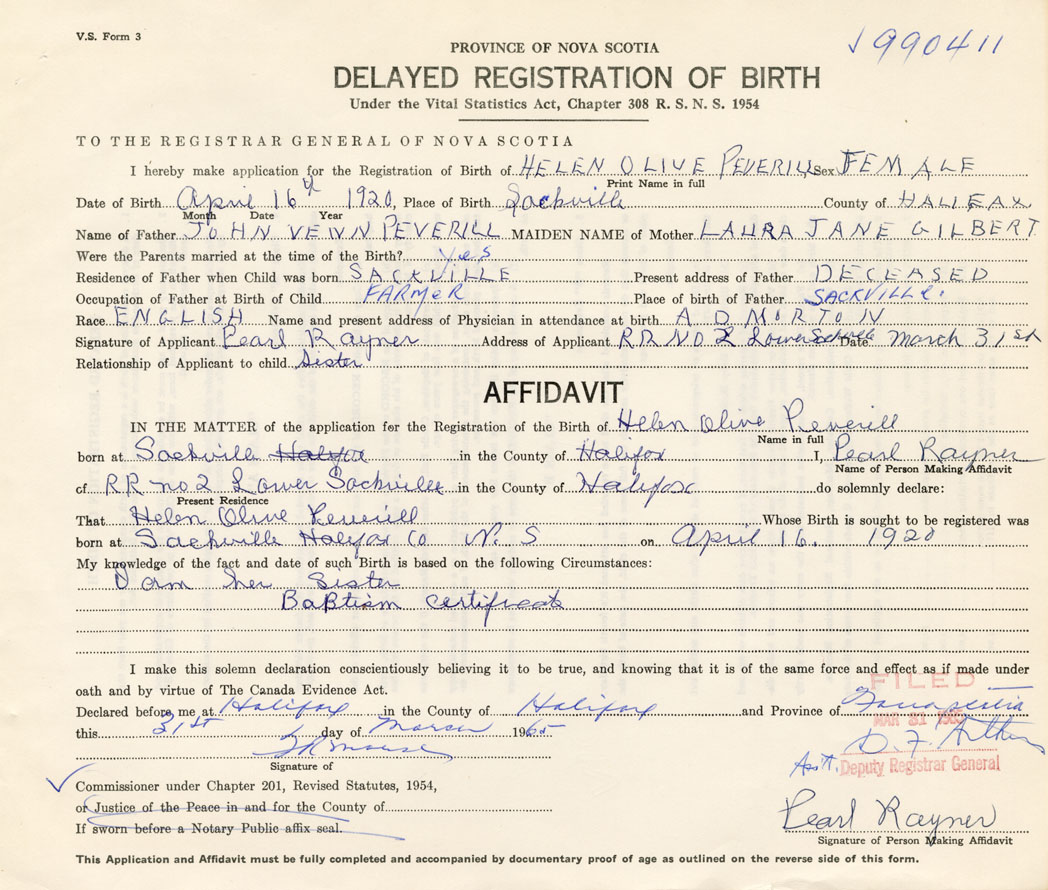 V.S. Form 3
990411
PROVINCE OF NOVA SCOTIA
DELAYED REGISTRATION OF BIRTH
Under the Vital Statistics Act, Chapter 308 R. S. N. S. 1954
TO THE REGISTRAR GENERAL OF NOVA SCOTIA
I hereby make application for the Registration of Birth of HELEN OLIVE PEVERILL Sex FEMALE
Print Name in full
Date of Birth April 16th 1920, Place of Birth Sackville County of HALIFAX
Month Date Year
Name of Father JOHN VENN PEVERILL MAIDEN NAME of Mother LAURA JANE GILBERT
Were the Parents married at the time of the Birth? yes
Residence of Father when Child was born SACKVILLE Present address of Father DECEASED
Occupation of Father at Birth of Child FARMER Place of birth of Father SACKVILLE.
Race ENGLISH Name and present address of Physician in attendance at birth A D MORTON
Signature of Applicant Pearl Rayner Address of Applicant RR NO 2 Lower Sackville Date March 31st
Relationship of Applicant to child Sister
AFFIDAVIT
IN THE MATTER of the application for the Registration of the Birth of Helen Olive Peverill
Name in full
born at Sackville Halifax in the County of Halifax I, Pearl Rayner
Name of Person Making Affidavit
of RR no 2 Lower Sackville in the County of Halifax do solemnly declare:
Present Residence
That Helen Olive Peverill Whose Birth is sought to be registered was
born at Sackville Halifax Co N. S on April 16. 1920
My knowledge of the fact and date of such Birth is based on the following Circumstances:
I am her Sister
Baptism certificate
I make this solemn declaration conscientiously believing it to be true, and knowing that it is of the same force and effect as if made under
oath and by virtue of The Canada Evidence Act.
FILED
Declared before me at Halifax in the County of Halifax and Province of Nova Scotia
MAR 31 1965
this 31st day of March 1965
Signature of
Ass't. Deputy Registrar General
Commissioner under Chapter 201, Revised Statutes, 1954,
or Justice of the Peace in and for the County of
Pearl Rayner
If sworn before a Notary Public affix seal.
Signature of Person Making Affidavit
This Application and Affidavit must be fully completed and accompanied by documentary proof of age as outlined on the reverse side of this form.